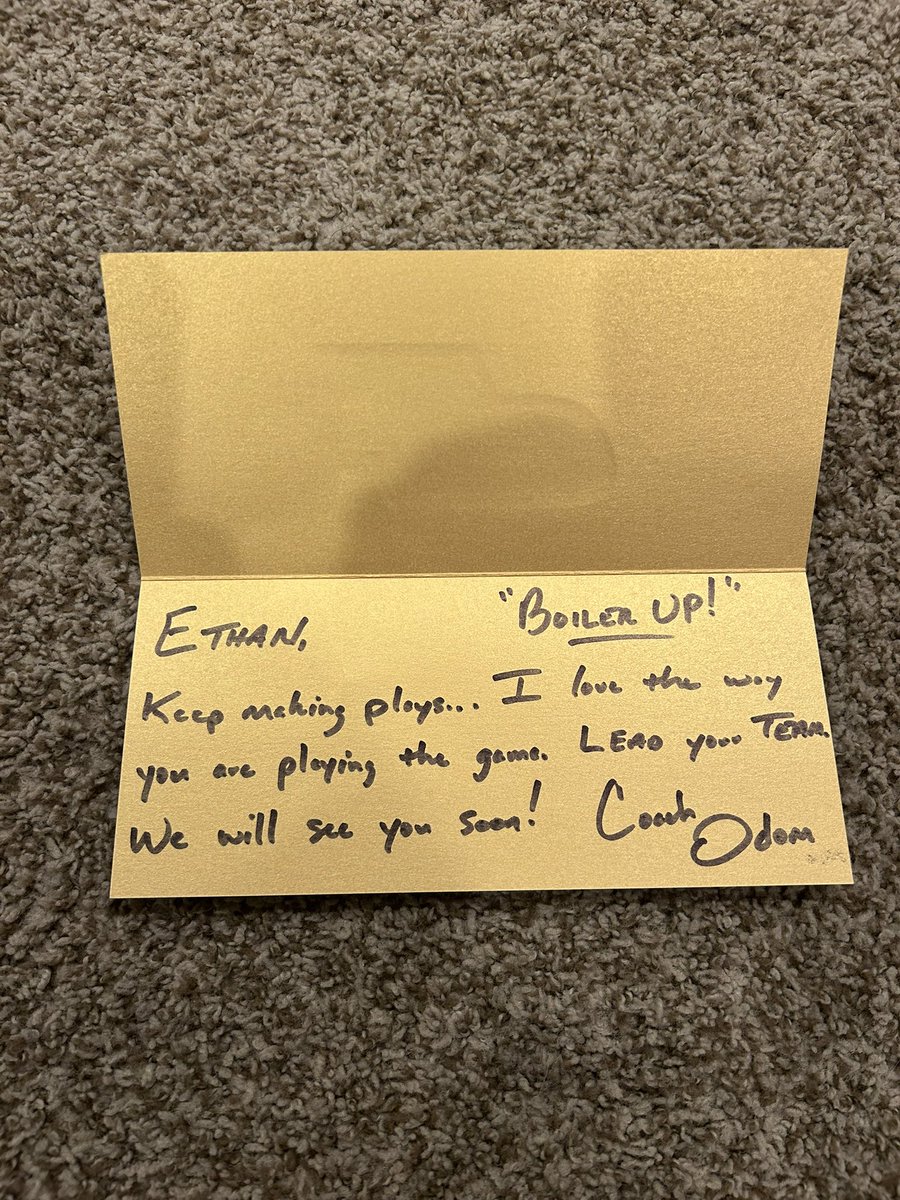 ETHAN, "BOILER UP!"
Keep making plays... I love the way
you are playing the game. LEAD your TEAM.
We will see you soon! Coach
Odom